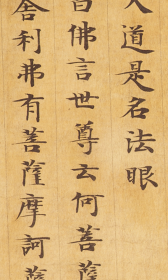 人道是名法眼
白佛言世尊云何菩薩
舍利弗有菩薩摩訶薩